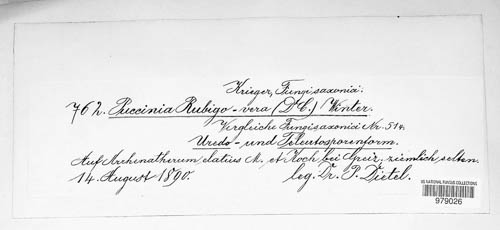 Krieger, Fungi saxonici.
762. Puccinia Rubigo-vera (D.C.) Winter.
Vergleiche Fungi saxonici Nr. 514.
Uredo- und Teleutosporenform.
Auf Arrhenatherum elatius M. et Koch bei Greiz, ziemlich selten.
14. August 1890. leg. Dr. P. Dietel.
US NATIONAL FUNGUS COLLECTIONS
979026